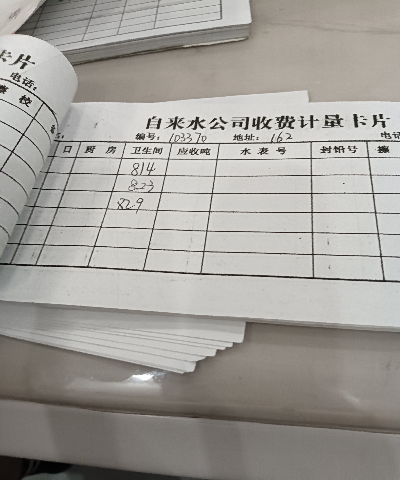 卡片
电话:
自来水公司收费计量卡片
编号: 103370 地址: 162 电话
口 厨房 卫生间 应收吨 水表号 封铅号
814
823
829